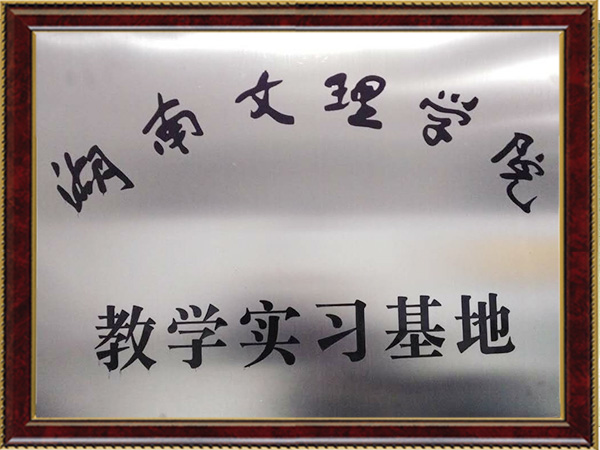 湖南文理学院
教学实习基地